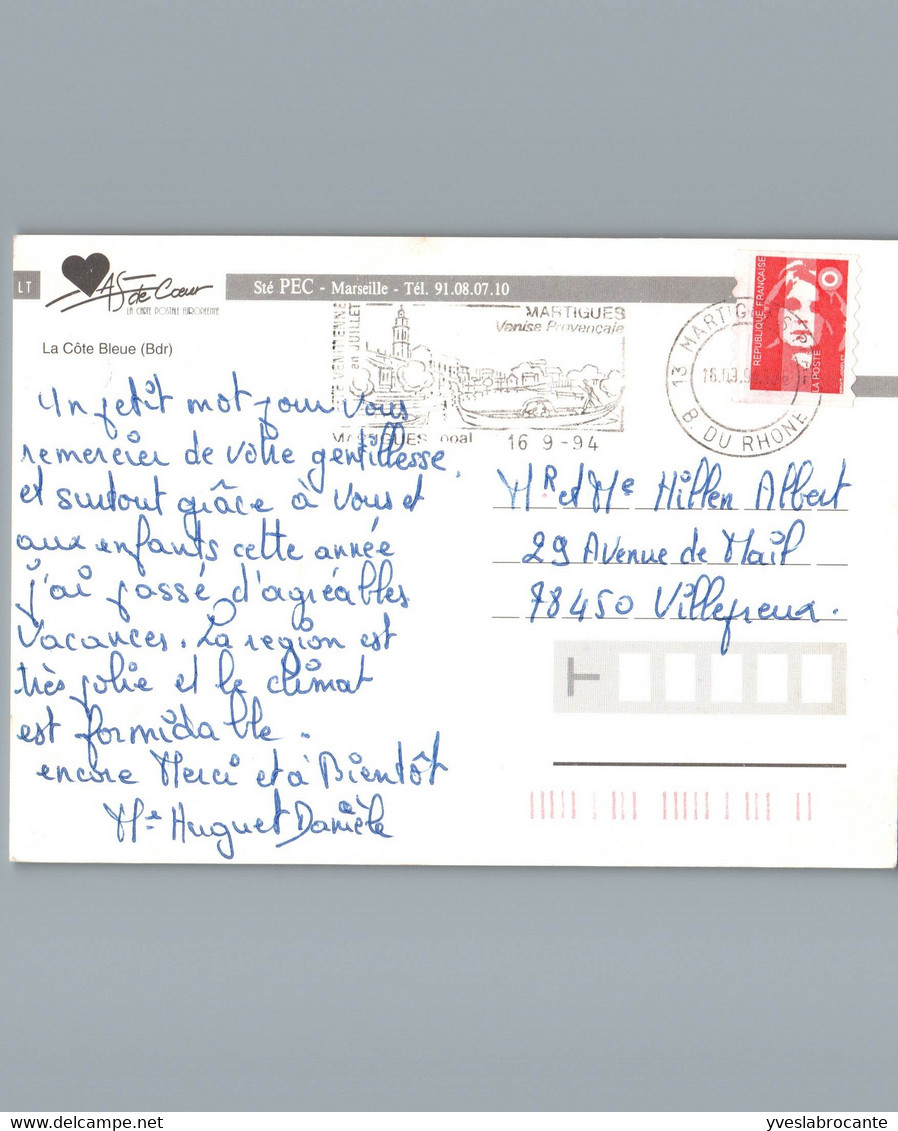 LT
AS de Cœur
LA CARTE POSTALE EUROPÉENNE
Sté PEC - Marseille - Tél. 91.08.07.10
La Côte Bleue (Bdr)
EN JUILLET
MARTIGUES
Venise Provençale
MARTIGUES ppal
16 9 -94
13 MARTIGUES
B. DU RHONE
REPUBLIQUE FRANÇAISE
LA POSTE
Un petit mot pour vous
remercier de vôtre gentillesse,
et surtout grâce à vous et
aux enfants cette année
j'ai passé d'agréables
vacances. La region est
très jolie et le climat
est formidable.
encore Merci et à Bientôt
Me Huguet Danièle
MR et Me Hillen Albert
29 Avenue de Mail
78450 Villepreux.
T
yveslabrocante